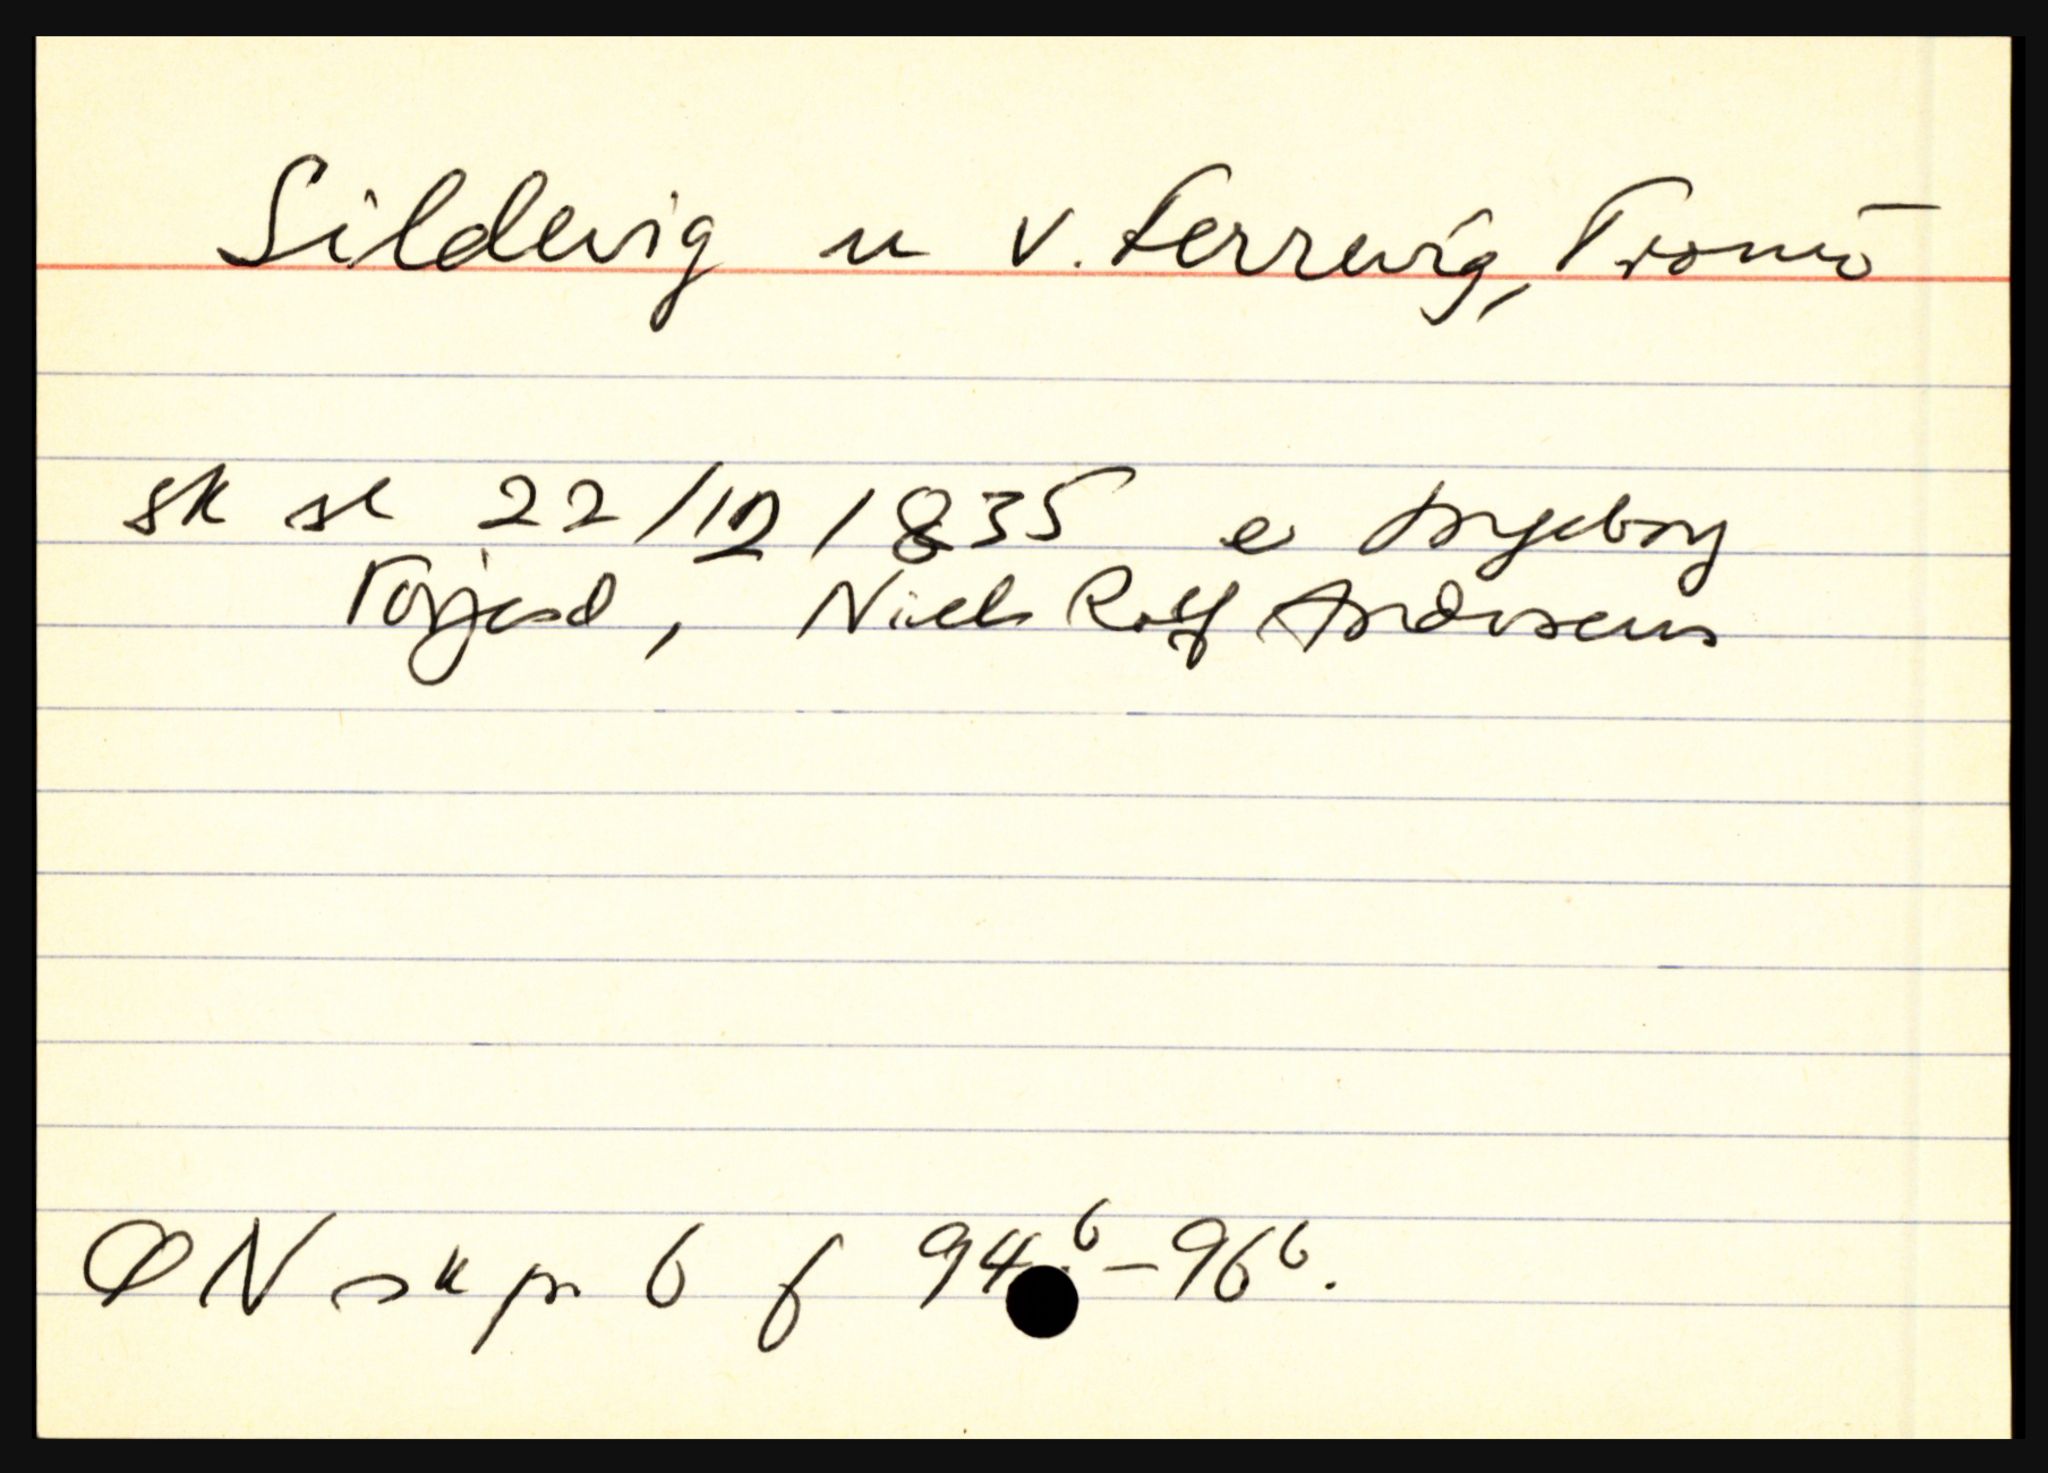 Sildevig u v. Færrevig, Tromö
sk sl 22/12 1835 e Ingeborg
Torjesd, Niels Rolf Andersens
ØN skpr 6 f 94 6 - 96 6.